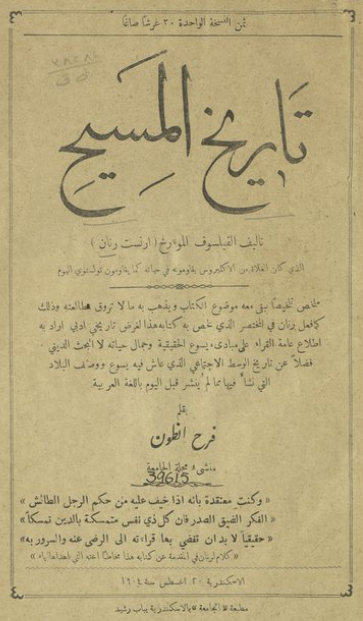 ثمن النسخة الواحدة ٢٠ غرشا صاغا
تاريخ المسيح
تاليف الفيلسوف المؤرخ (ارنست رنان)
الذي كان الغلاة من الاكليروس يقاومونه في حياته كما يقاومون تولستوي اليوم
ملخص تلخيصاً يبقى معه موضوع الكتاب ويذهب به ما لا تروق مطالعته وذلك
كما فعل رنان في المختصر الذي لخص به كتابه هذا لغرض تاريخي ادبي اراد به
اطلاع عامة القراء على مبادىء يسوع الحقيقية وجمال حياته لا البحث الديني
فضلاً عن تاريخ الوسط الاجتماعي الذي عاش فيه يسوع ووصف البلاد
التي نشأ فيها مما لم يُنشر قبل اليوم باللغة العربية
بقلم
فرح انطون
منشىء مجلة الجامعة
39615
«وكنت معتقدة بانه اذا خيف عليه من حكم الرجل الطائش»
«الفكر الضيق الصدر فان كل ذي نفس متمسكة بالدين تمسكاً»
«حقيقياً لا بد ان تفضي بها قراءته الى الرضى عنه والسرور به»
«كلام لرنان في المقدمة عن كتابه هذا مخاطباً اخته التي»
الاسكندرية ٢٠ اغسطس سنة ١٩٠٤
مطبعة «الجامعة» بالاسكندرية بباب رشيد